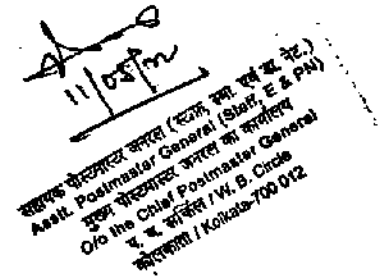 11/05/22
सहायक पोस्टमास्टर जनरल (स्टाफ, स्था. एवं डा. नेट.)
Asstt. Postmaster General (Staff, E & PN)
मुख्य पोस्टमास्टर जनरल का कार्यालय
O/o the Chief Postmaster General
प. बं. सर्किल / W. B. Circle
कोलकाता / Kolkata-700 012